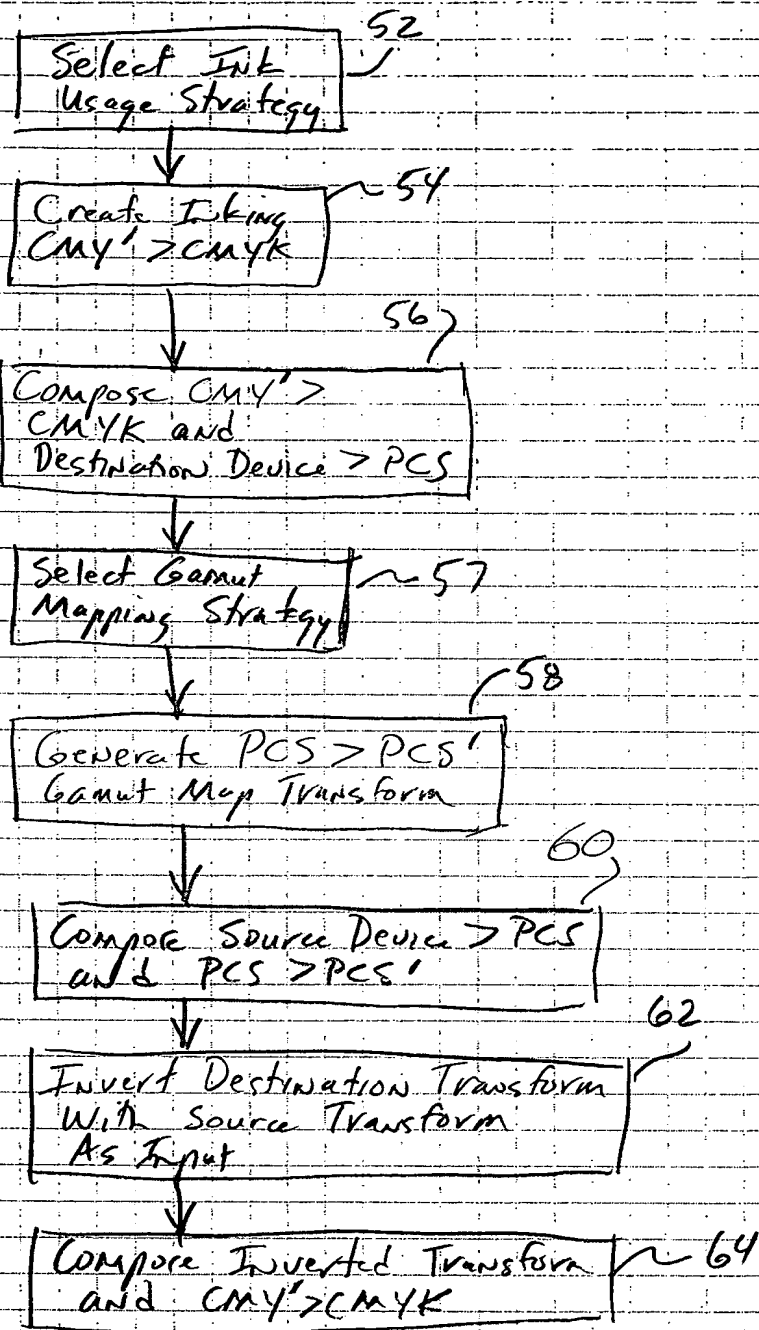 52
Select Ink
Usage Strategy
54
Create Inking
CMY' > CMYK
56
Compose CMY' >
CMYK and
Destination Device > PCS
Select Gamut
Mapping Strategy
57
58
Generate PCS > PCS'
Gamut Map Transform
60
Compose Source Device > PCS
and PCS > PCS'
62
Invert Destination Transform
With Source Transform
As Input
Compose Inverted Transform
and CMY' > CMYK
64